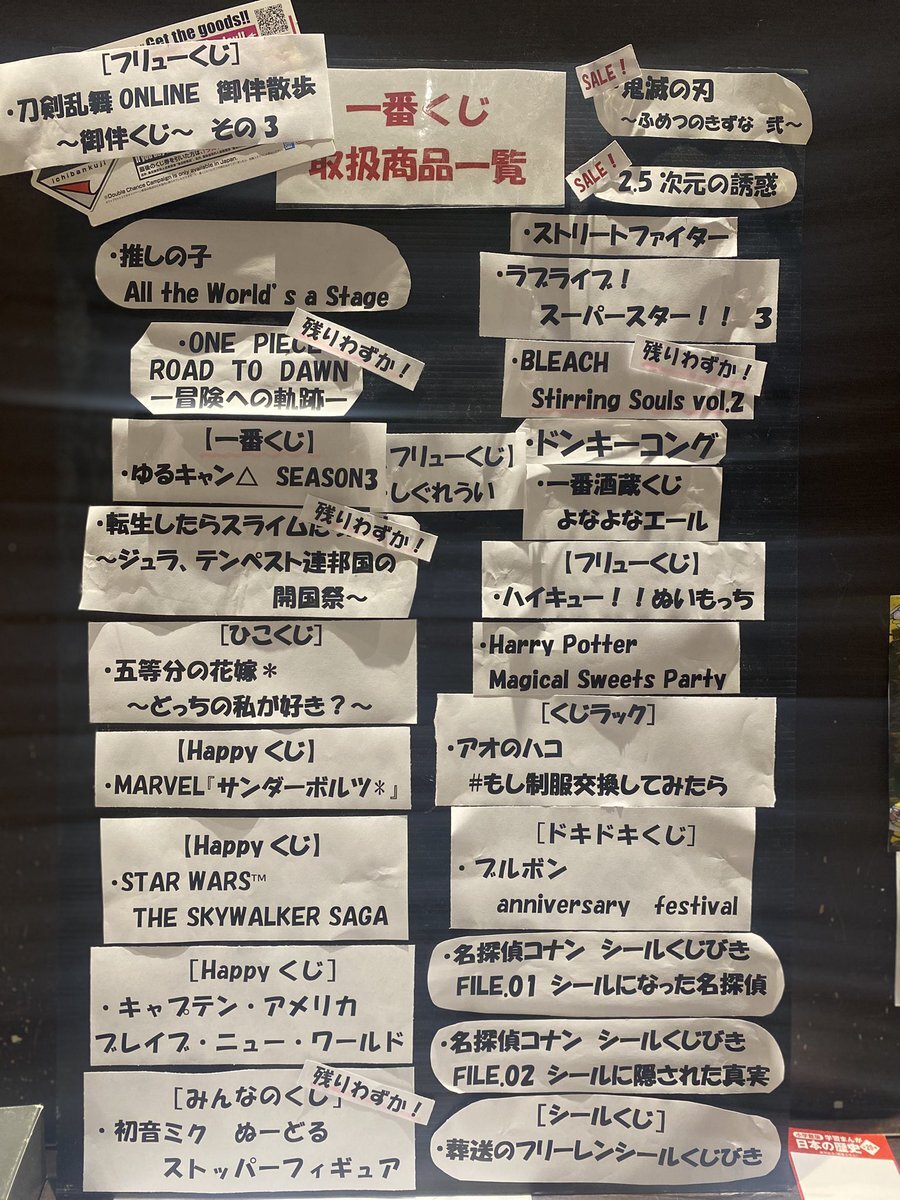 Get the goods!!
[フリューくじ]
・刀剣乱舞ONLINE 御伴散歩
～御伴くじ～ その3
ichibankuji
※Double Chance Campaign is only available in Japan.
一番くじ
取扱商品一覧
SALE!
鬼滅の刃
～ふめつのきずな 弐～
SALE!
2.5次元の誘惑
・推しの子
All the World's a Stage
・ONE PIECE
残りわずか!
ROAD TO DAWN
ー冒険への軌跡ー
【一番くじ】
・ゆるキャン△ SEASON3
フリューくじ】
しぐれうい
・転生したらスライム
残りわずか!
～ジュラ、テンペスト連邦国の
開国祭～
[ひこくじ]
・五等分の花嫁*
～どっちの私が好き?～
【Happyくじ】
・MARVEL『サンダーボルツ*』
【Happyくじ】
・STAR WARS™
THE SKYWALKER SAGA
[Happyくじ]
・キャプテン・アメリカ
ブレイブ・ニュー・ワールド
[みんなのくじ]
残りわずか!
・初音ミク ぬーどる
ストッパーフィギュア
・ストリートファイター
・ラブライブ!
スーパースター!! 3
・BLEACH
残りわずか!
Stirring Souls vol.2
・ドンキーコング
・一番酒蔵くじ
よなよなエール
【フリューくじ】
・ハイキュー!!ぬいもっち
・Harry Potter
Magical Sweets Party
[くじラック]
・アオのハコ
#もし制服交換してみたら
[ドキドキくじ]
・ブルボン
anniversary festival
・名探偵コナン シールくじびき
FILE.01 シールになった名探偵
・名探偵コナン シールくじびき
FILE.02 シールに隠された真実
[シールくじ]
・葬送のフリーレンシールくじびき
学習まんが
日本の歴史